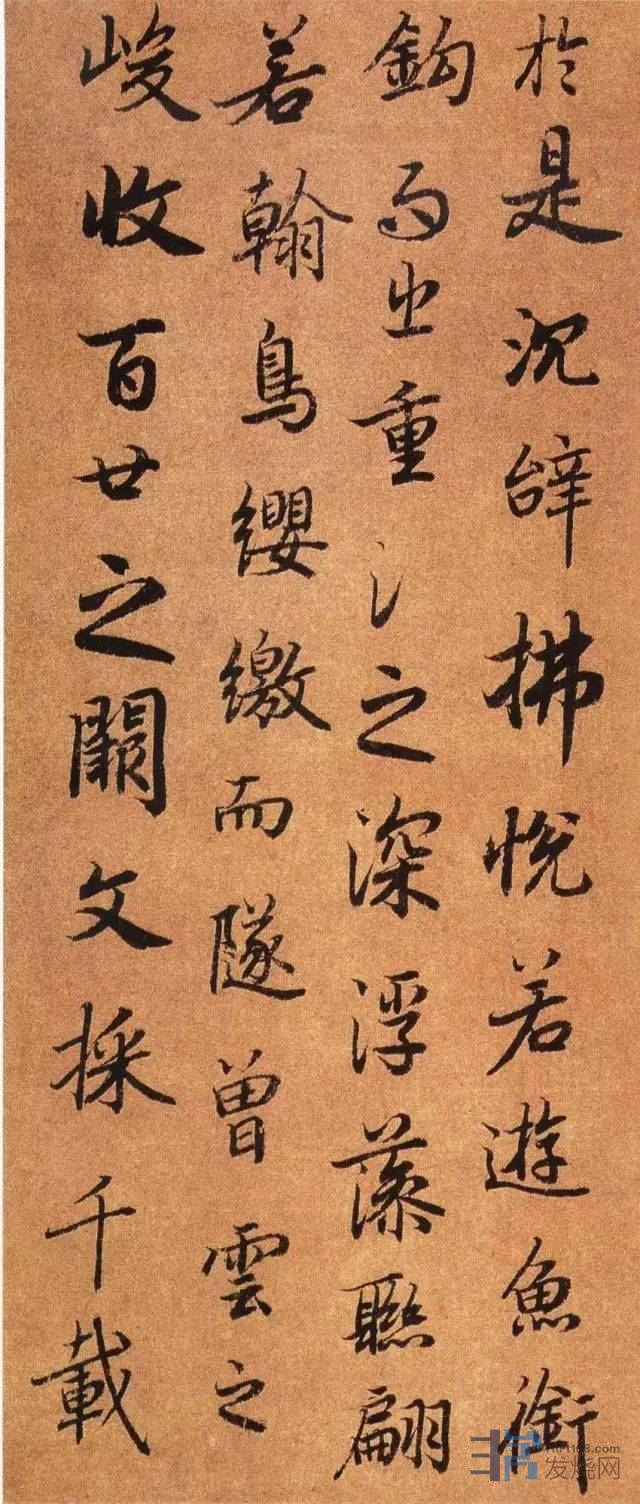 於是沉辝拂悅若遊魚銜
鈎而出重氵之深浮藻聯翩
若翰鳥纓繳而隊曾雲之
峻收百廿之闕文採千載
发烧网